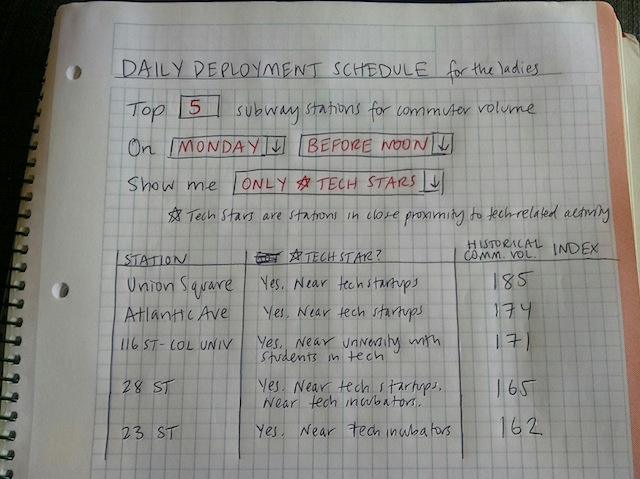 DAILY DEPLOYMENT SCHEDULE for the ladies
Top 5 subway stations for commuter volume
On MONDAY ↓ BEFORE NOON ↓
Show me ONLY ☆ TECH STARS ↓
☆ Tech Stars are stations in close proximity to tech-related activity
STATION ☆ TECH STAR? HISTORICAL COMM. VOL. INDEX
Union Square Yes. Near tech startups 185
Atlantic Ave Yes. Near tech startups 174
116 ST - COL UNIV Yes. Near university with 171
students in tech
28 ST Yes. Near tech startups. 165
Near tech incubators.
23 ST Yes. Near Tech incubators 162